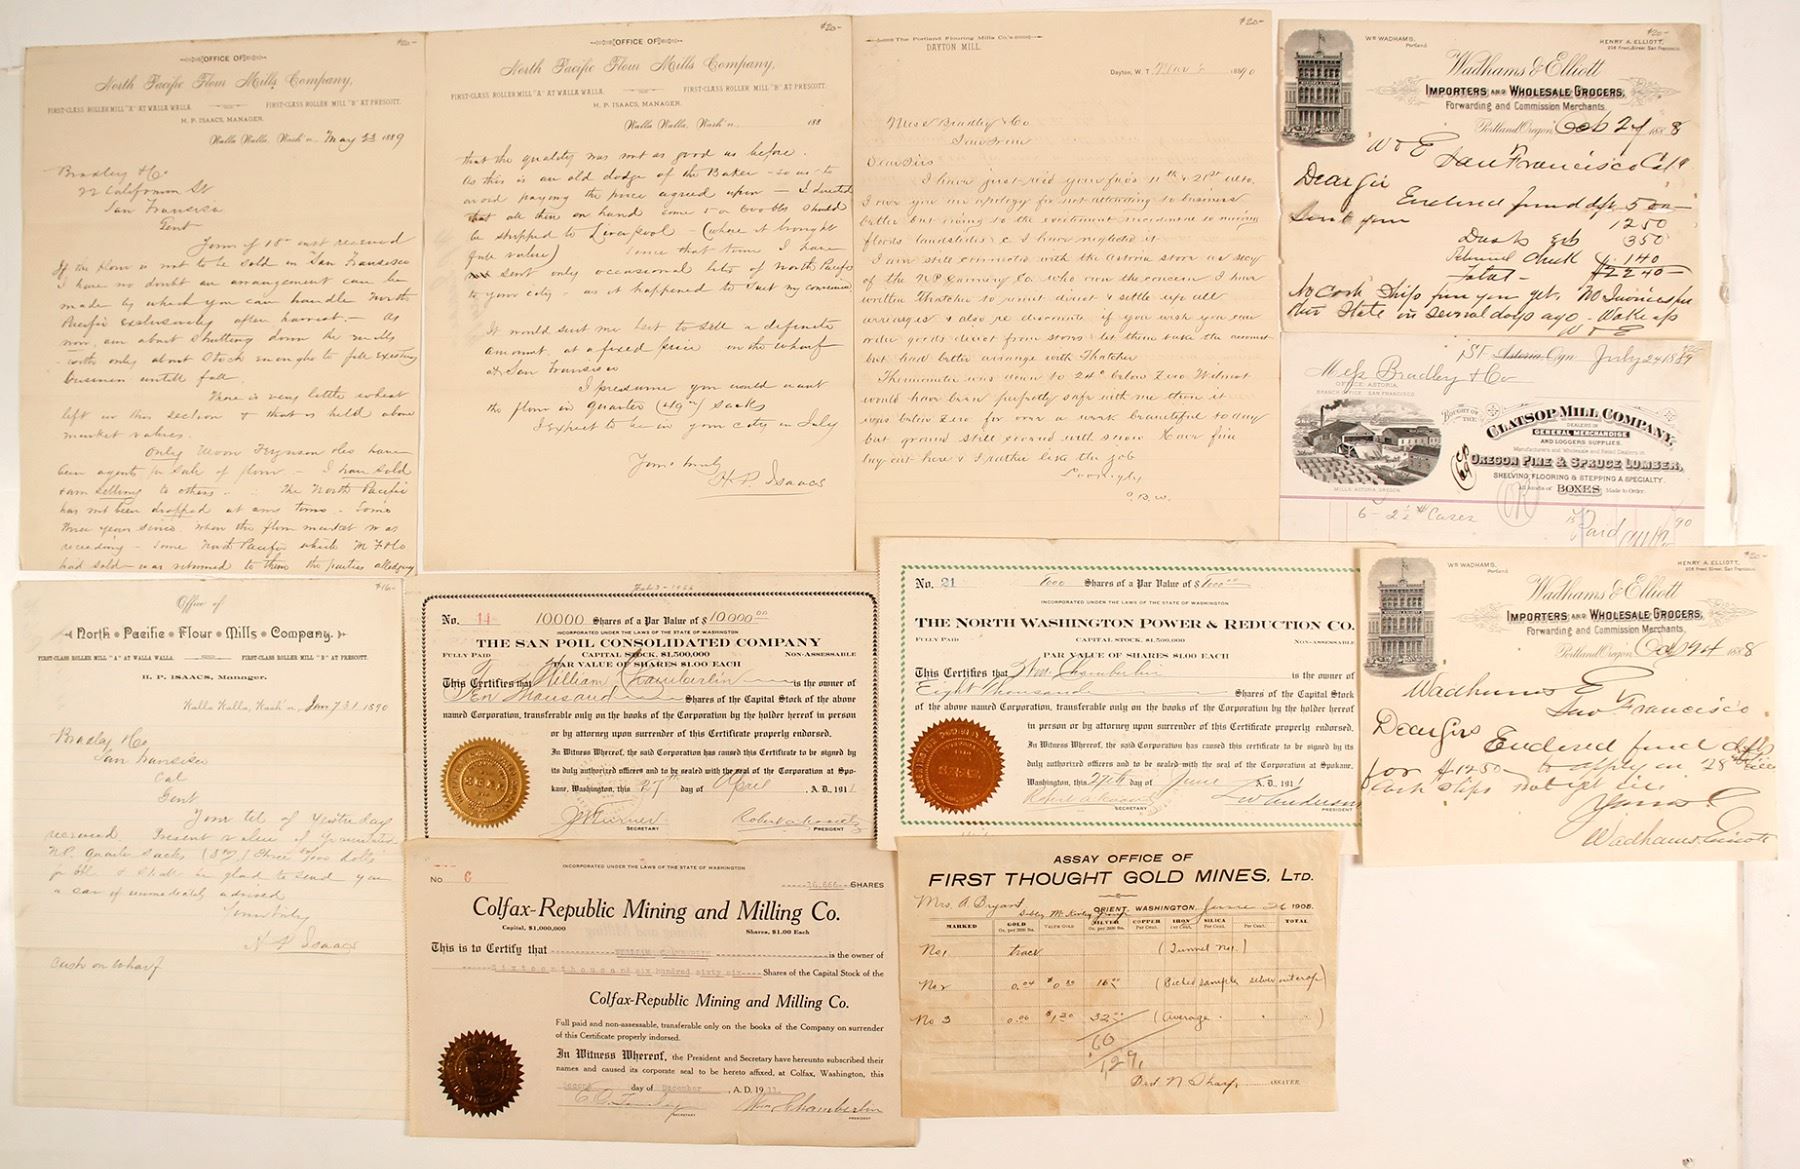 $20-
OFFICE OF
North Pacific Flour Mills Company,
FIRST-CLASS ROLLER MILL "A" AT WALLA WALLA. FIRST-CLASS ROLLER MILL "B" AT PRESCOTT.
H. P. ISAACS, MANAGER.
Walla Walla, Wash'n, May 23 1889
Bradley & Co
22 California St
San Francisco
Gent
Yours of 18th inst received
If the flour is not to be sold in San Francisco
I have no doubt an arrangement can be
made by which you can handle North
Pacific exclusively after harvest. - As
now am about shutting down the mills
- with only about stock enough to fill existing
business untill fall.
There is very little wheat
left in this section & that is held above
market values.
Only
been agents for sale of flour - I have sold
& am selling to others. The North Pacific
has not been dropped at any time. Some
three years since, when the flour market was
receeding - Some North Pacific which
had sold - was returned to them the parties alledging
$20-
OFFICE OF
North Pacific Flour Mills Company,
FIRST-CLASS ROLLER MILL "A" AT WALLA WALLA. FIRST-CLASS ROLLER MILL "B" AT PRESCOTT.
H. P. ISAACS, MANAGER.
Walla Walla, Wash'n, 188
that the quality was not as good as before.
As this is an old dodge of the Baker - so as to
avoid paying the price agreed upon - I directed
that all then on hand some 5 or 600 bbls should
be shipped to Liverpool - (where it brought
full value) Since that time I have
sent only occasional lots of North Pacific
to your city - as it happened to suit my convenience
It would suit me best to sell a definite
amount, at a fixed price on the wharf
at San Francisco
I presume you would want
the flour in quarter (49 lb) sacks
I expect to be in your city in July
Yours truly
H. P. Isaacs
$20-
The Portland Flouring Mills Co.'s
DAYTON MILL.
Dayton, W. T. Mar 1890
Mess Bradley & Co
San Fran
Dear Sirs
I have just rec'd your favs 11th & 21st ulto.
I owe you an apology for not attending to business
better but owing to the excitement
floods landslides &c I have neglected it
I am still connected with the Astoria store as secy
of the N.P. Canning Co. who own the concern I have
written Thatcher to remit direct & settle up all
arriarges & also re discounts, if you wish you can
order goods direct from stores let them take the account
but had better arrange with Thatcher
Thermometer was down to 24° below Zero
would have been perfectly safe with me then it
was below zero for over a week beautiful today
but ground still covered with snow Have fine
lay out here & I rather like the job
$20-
WM WADHAMS, Portland.
HENRY A. ELLIOTT, 208 Front Street San Francisco.
Wadhams & Elliott
IMPORTERS AND WHOLESALE GROCERS,
Forwarding and Commission Merchants.
Portland Oregon, Oct 24 1888
W & E San Francisco Cal
Dear Sir
Enclosed find dft 500-
Sent you 1250
350
Check 140
Total - $2240-
No Cash Slips from you yet. No Invoices per
Str State in several days ago. Wake up
W & E
$20-
Astoria, Ogn, July 24 1889
Mess Bradley & Co
OFFICE: ASTORIA.
BRANCH OFFICE SAN FRANCISCO
BOUGHT OF THE
CLATSOP MILL COMPANY,
DEALERS IN
GENERAL MERCHANDISE
AND LOGGERS SUPPLIES.
Manufacturers and Wholesale and Retail Dealers in
OREGON PINE & SPRUCE LUMBER,
SHELVING, FLOORING & STEPPING A SPECIALTY.
All kinds of BOXES Made to Order.
MILLS ASTORIA OREGON.
OK
6 - 2½ # Cases
Paid
$16-
Office of
North Pacific Flour Mills Company.
FIRST-CLASS ROLLER MILL "A" AT WALLA WALLA. FIRST-CLASS ROLLER MILL "B" AT PRESCOTT.
H. P. ISAACS, Manager.
Walla Walla, Wash'n, Jany 31 1890
Bradley & Co
San Fransisco
Cal
Gent
Your tel of Yesterday
received Present value of
N.P. Quarter sacks
for bbl & shall be glad to send you
a car if immediately advised
Yours truly
H P Isaacs
Cash on Wharf
No. 11 10000 Shares of a Par Value of $10.000.00
INCORPORATED UNDER THE LAWS OF THE STATE OF WASHINGTON
THE SAN POIL CONSOLIDATED COMPANY
FULLY PAID CAPITAL STOCK, $1,500,000 NON-ASSESSABLE
PAR VALUE OF SHARES $1.00 EACH
This Certifies that William Chamberlin is the owner of
Ten Thousand Shares of the Capital Stock of the above
named Corporation, transferable only on the books of the Corporation by the holder hereof in person
or by attorney upon surrender of this Certificate properly endorsed.
In Witness Whereof, the said Corporation has caused this Certificate to be signed by
its duly authorized officers and to be sealed with the seal of the Corporation at Spo-
kane, Washington, this 27th day of April, A. D., 1911
SEAL
SECRETARY PRESIDENT
No. 21 8000 Shares of a Par Value of $8000.00
INCORPORATED UNDER THE LAWS OF THE STATE OF WASHINGTON
THE NORTH WASHINGTON POWER & REDUCTION CO.
FULLY PAID CAPITAL STOCK, $1,500,000 NON-ASSESSABLE
PAR VALUE OF SHARES $1.00 EACH
This Certifies that Wm. Chamberlin is the owner of
Eight Thousand Shares of the Capital Stock
of the above named Corporation, transferable only on the books of the Corporation by the holder hereof
in person or by attorney upon surrender of this Certificate properly endorsed.
In Witness Whereof, the said Corporation has caused this certificate to be signed by its duly
authorized officers and to be sealed with the seal of the Corporation at Spokane,
Washington, this 27th day of June A. D. 1911
SECRETARY PRESIDENT
$20-
WM WADHAMS, Portland.
HENRY A. ELLIOTT, 208 Front Street, San Francisco.
Wadhams & Elliott
IMPORTERS AND WHOLESALE GROCERS,
Forwarding and Commission Merchants.
Portland Oregon, Oct 19th 1888
Wadhams & E
San Francisco
Dear Sirs Enclosed find dft
for $1250- to apply on
Cash slips not yet
Yours &
Wadhams & Elliott
INCORPORATED UNDER THE LAWS OF THE STATE OF WASHINGTON
No 6 16,666 SHARES
Colfax-Republic Mining and Milling Co.
Capital, $1,000,000 Shares, $1.00 Each
This is to Certify that WILLIAM C. is the owner of
Sixteen thousand six hundred sixty six Shares of the Capital Stock of the
Colfax-Republic Mining and Milling Co.
Full paid and non-assessable, transferable only on the books of the Company on surrender
of this Certificate properly indorsed.
In Witness Whereof, the President and Secretary have hereunto subscribed their
names and caused its corporate seal to be hereto affixed, at Colfax, Washington, this
Second day of December, A. D. 1911.
Wm Chamberlin
SECRETARY PRESIDENT
ASSAY OFFICE OF
FIRST THOUGHT GOLD MINES, LTD.
Mrs. A. Bryant
ORIENT, WASHINGTON, June 26 1905.
MARKED GOLD Oz. per 2000 lbs. VALUE GOLD SILVER Oz. per 2000 lbs. COPPER Per Cent. IRON Per Cent. SILICA Per Cent. Per Cent. TOTAL
No 1 trace (Tunnel No. 1)
No 2 0.04 $0.80 16.00 (Picked sample silver outcrop)
No 3 0.06 $1.20 32.00 (Average " " ")
.60
ASSAYER.